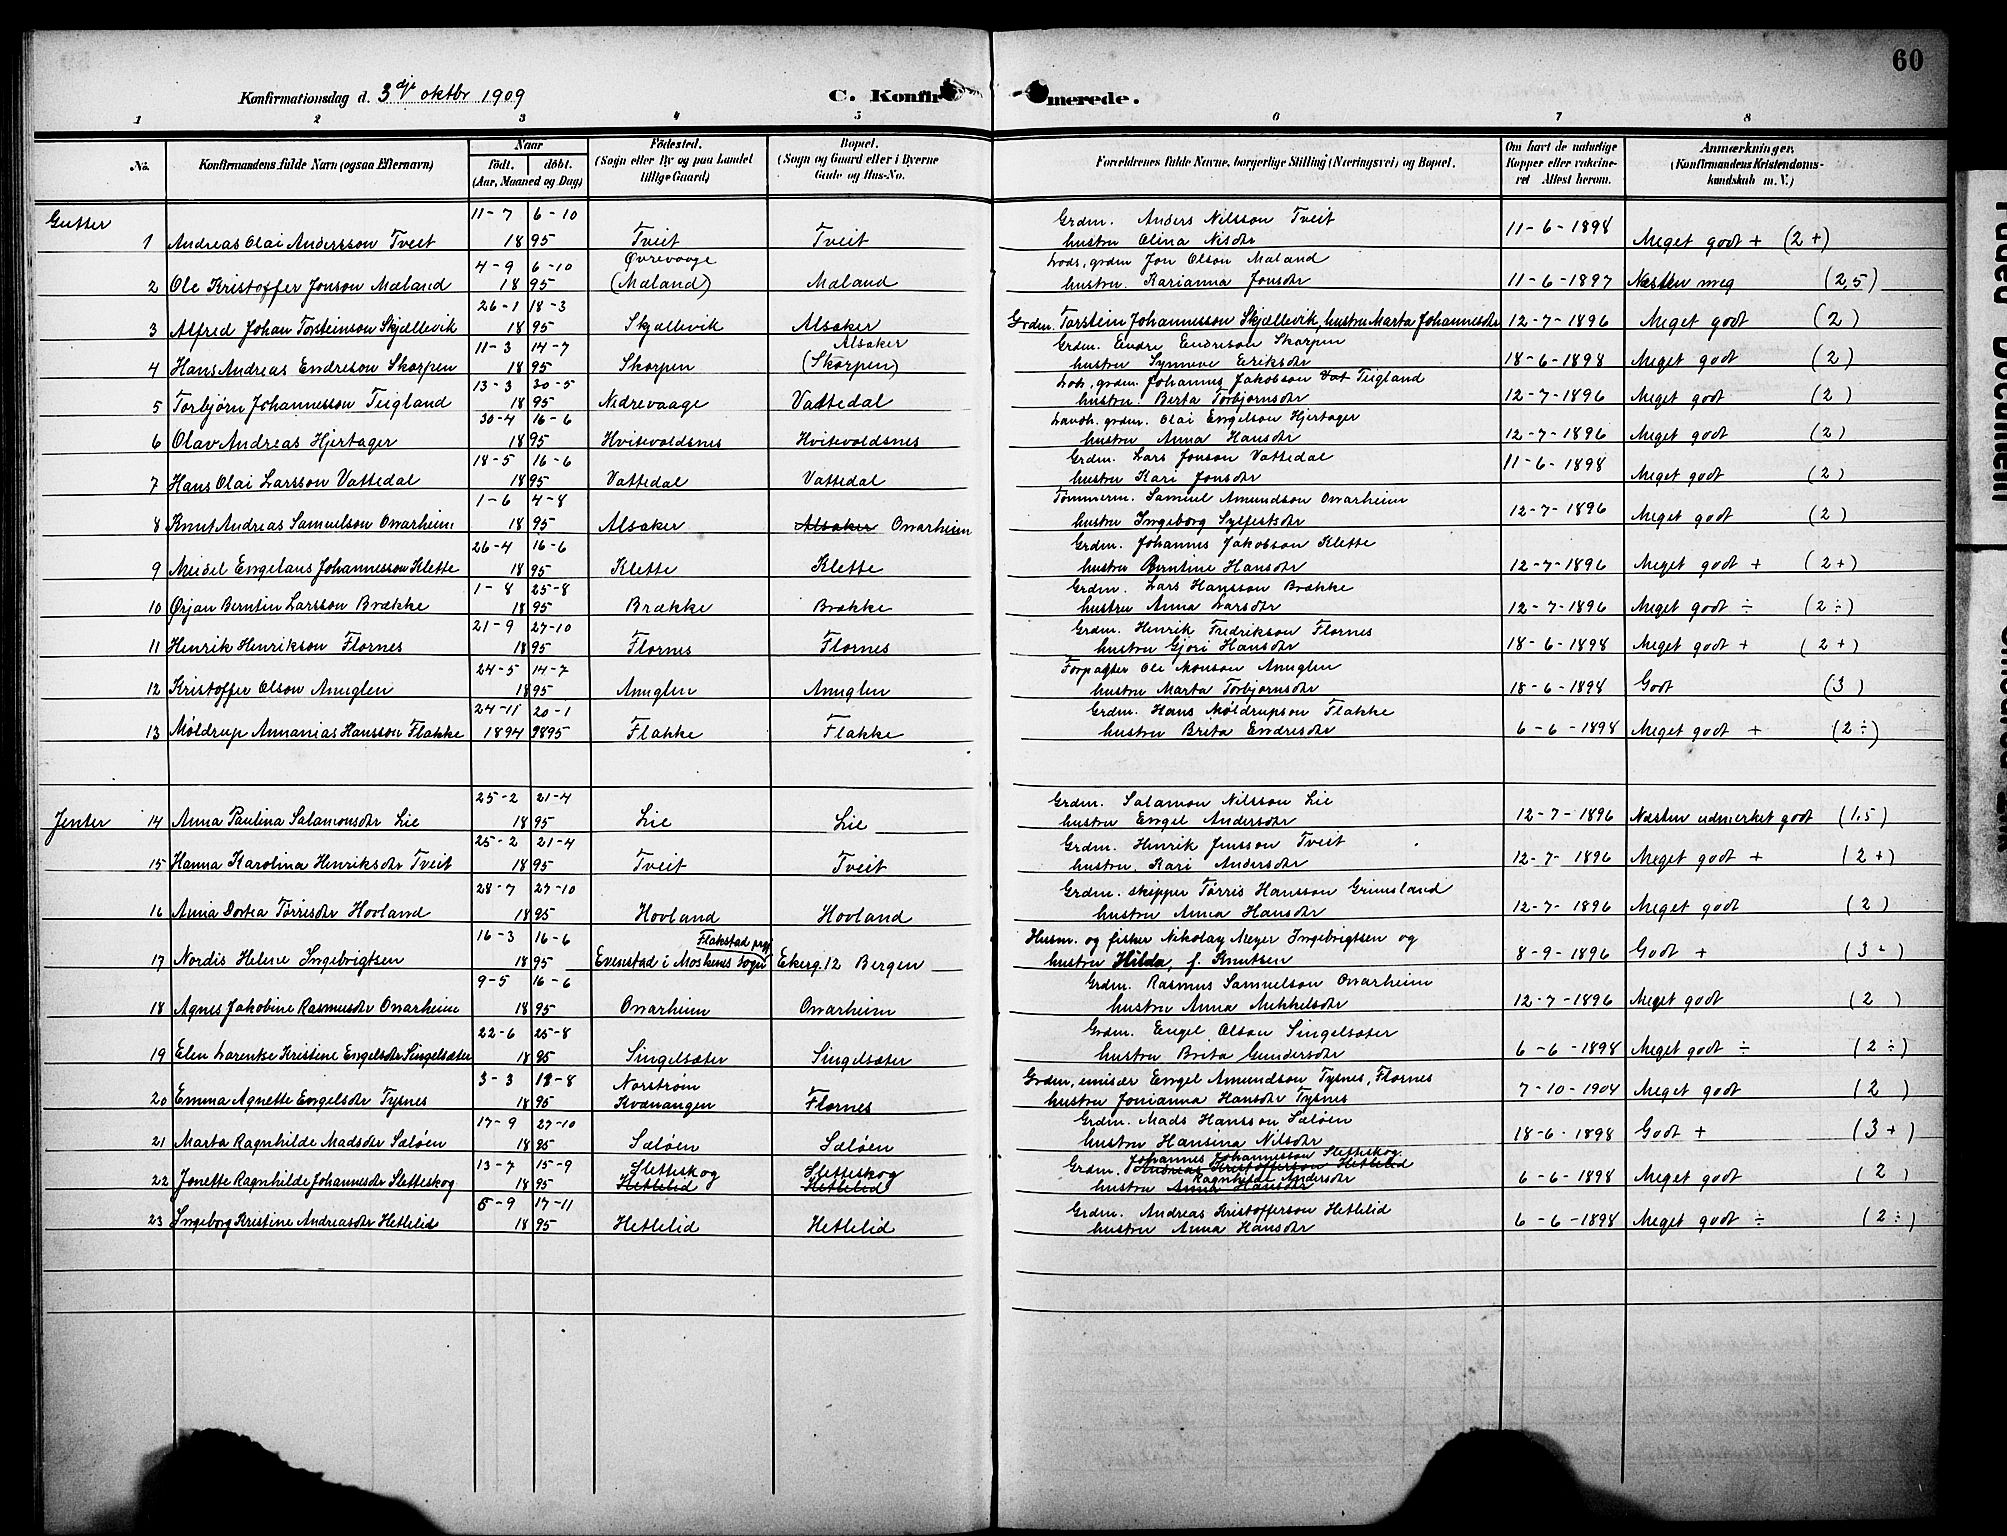 60
Konfirmationsdag d. 3dje oktbr 1909
C. Konfirmerede.
1 2 3 4 5 6 7 8
No. Konfirmandens fulde Navn (ogsaa Efternavn) Naar født. døbt. (Aar, Maaned og Dag) Fødested. (Sogn eller By og paa Landet tillige Gaard) Bopæl. (Sogn og Gaard eller i Byerne Gade og Hus-No. Forældrenes fulde Navne, borgerlige Stilling (Næringsvei) og Bopæl. Om havt de naturlige Kopper eller vakcineret Attest herom. Anmærkninger. (Konfirmandens Kristendomskundskab m. V.)
Gutter
11-7 6-10 Grdm. Anders Nilsson Tveit
1 Andreas Olai Andersson Tveit 1895 Tveit Tveit hustru Olina Nilsdtr 11-6-1898 Meget godt + (2+)
4-9 6-10 Øvrevaage Lods, grdm Jon Olson Mæland
2 Ole Kristoffer Jonson Mæland 1895 (Mæland) Mæland hustru Karianna Jonsdtr 11-6-1897 Næsten meg (2,5)
26-1 18-3
3 Alfred Johan Torsteinson Skjællevik 1895 Skjællevik Alsaker Grdm. Torstein Johannesson Skjællevik, hustru Marta Johannesdtr 12-7-1896 Meget godt (2)
11-3 14-7 Alsaker Grdm. Endre Endreson Skorpen
4 Hans Andreas Endreson Skorpen 1895 Skorpen (Skorpen) hustru Synneve Eriksdtr 18-6-1898 Meget godt (2)
13-3 20-5 Lods, grdm. Johannes Jakobson Teigland
5 Torbjørn Johannesson Teigland 1895 Nedrevaage Vattedal hustru Berta Torbjørnsdtr 12-7-1896 Meget godt (2)
30-4 16-6 Landh. grdm. Olai Engelson Hjertager
6 Olav Andreas Hjertager 1895 Hvitevoldsnes Hvitevoldsnes hustru Anna Hansdtr 12-7-1896 Meget godt (2)
18-5 16-6 Grdm. Lars Jonson Vattedal
7 Hans Olai Larsson Vattedal 1895 Vattedal Vattedal hustru Kari Jonsdtr 11-6-1898 Meget godt (2)
1-6 4-8 Tømmerm. Samuel Amundson Onarheim
8 Knut Andreas Samuelson Onarheim 1895 Alsaker Alsaker Onarheim hustru Ingeborg Sylfestsdtr 12-7-1896 Meget godt (2)
26-4 16-6 Grdm. Johannes Jakobson Klette
9 Meidel Engelaus Johannesson Klette 1895 Klette Klette hustru Berntine Hansdtr 12-7-1896 Meget godt + (2+)
1-8 25-8 Grdm. Lars Hansson Brække
10 Ørjan Berntin Larsson Brække 1895 Brække Brække hustru Anna Larsdtr 12-7-1896 Meget godt ÷ (2÷)
21-9 27-10 Grdm. Henrik Fredrikson Flornes
11 Henrik Henrikson Flornes 1895 Flornes Flornes hustru Gjøri Hansdtr 18-6-1898 Meget godt + (2+)
24-5 14-7 Forpagter Ole Monson Anuglen
12 Kristoffer Olson Anuglen 1895 Anuglen Anuglen hustru Marta Torbjørnsdtr 18-6-1898 Godt (3)
24-11 20-1 Grdm. Hans Møldrupson Flakke
13 Møldrup Annanias Hansson Flakke 1894 1895 Flakke Flakke hustru Brita Endresdtr 6-6-1898 Meget godt + (2÷)
Jenter
25-2 21-4 Grdm. Salamon Nilsson Lie
14 Anna Paulina Salamonsdtr Lie 1895 Lie Lie hustru Engel Andersdtr 12-7-1896 Næsten udmerket godt (1,5)
25-2 21-4 Grdm. Henrik Jensson Tveit
15 Hanna Karolina Henriksdtr Tveit 1895 Tveit Tveit hustru Kari Andersdtr 12-7-1896 Meget godt + (2+)
28-7 27-10 Grdm. skipper Tørris Hansson Grimsland
16 Anna Dortea Tørrisdtr Hovland 1895 Hovland Hovland hustru Anna Hansdtr 12-7-1896 Meget godt (2)
16-3 16-6 Flakstad prgj Husm. og fisker Nikolay Meyer Ingebrigtsen og
17 Nordis Helene Ingebrigtsen 1895 Evenstad i Moskenes Sogn Ekerg. 12 Bergen hustru Hilda, f. Knutsen 8-9-1896 Godt + (3÷)
9-5 16-6 Grdm. Rasmus Samuelson Onarheim
18 Agnes Jakobine Rasmusdtr Onarheim 1895 Onarheim Onarheim hustru Anna Mikkelsdtr 12-7-1896 Meget godt (2)
22-6 25-8 Grdm. Engel Olson Singelsæter
19 Elen Larenke Kristine Engelsdtr Singelsæter 1895 Singelsæter Singelsæter hustru Brita Gundersdtr 6-6-1898 Meget godt ÷ (2÷)
3-3 18-8 Norstrøm Grdm, emisær Engel Amundson Tysnes, Flornes
20 Emma Agnette Engelsdtr Tysnes 1895 Kvænangen Flornes hustru Jonianna Hansdtr Tysnes 7-10-1904 Meget godt (2)
17-9 27-10 Grdm. Mads Hansson Sæløen
21 Marta Ragnhilde Madsdtr Sæløen 1895 Sæløen Sæløen hustru Hansina Nilsdtr 18-6-1898 Godt + (3+)
13-7 15-9 Sletteskog Sletteskog Grdm. Johannes Johannesson Sletteskog Andreas Kristofferson Hetlelid
22 Jonette Ragnhilde Johannesdtr Sletteskog 1895 Hetlelid Hetlelid hustru Ragnhilde Andersdtr Anna Hansdtr 6-6-1898 Meget godt (2)
5-9 17-11 Grdm. Andreas Kristofferson Hetlelid
23 Ingeborg Kristine Andreasdtr Hetlelid 1895 Hetlelid Hetlelid hustru Anna Hansdtr 6-6-1898 Meget godt ÷ (2÷)